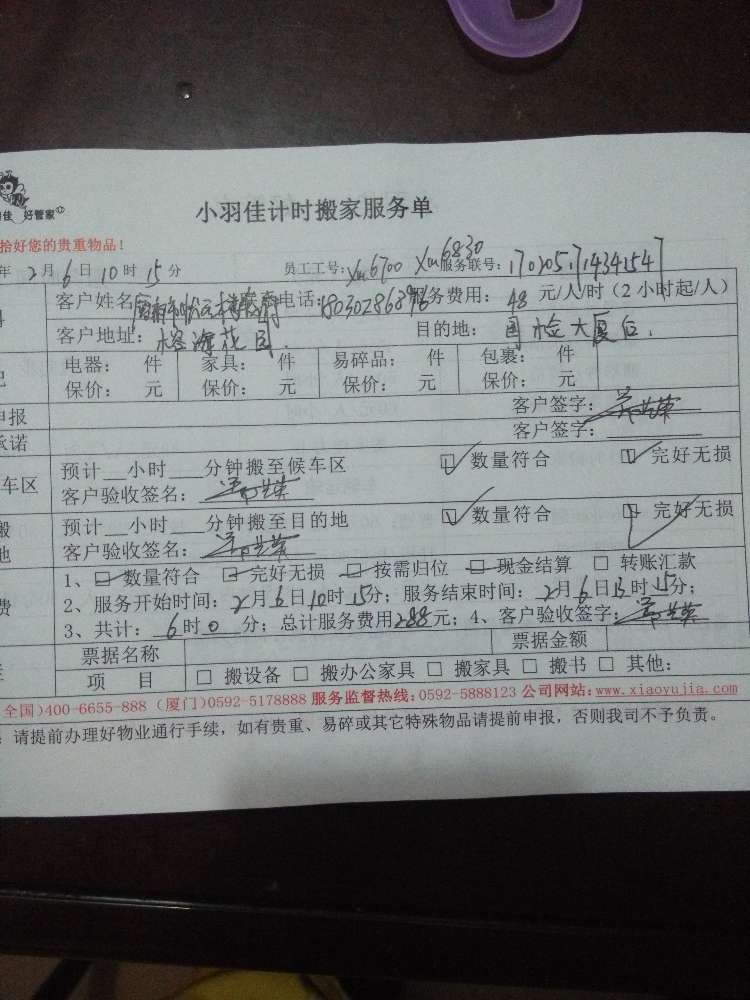 佳 好管家
小羽佳计时搬家服务单
拾好您的贵重物品！
年 2 月 6 日 10 时 15 分 员工工号：Xm6700 Xm6830 服务联号：170205171434154
客户姓名 电话：服务费用：48 元/人/时（2 小时起/人）
客户地址：榕海花园. 目的地：国检大厦后.
电器： 件 家具： 件 易碎品： 件 包裹： 件
保价： 元 保价： 元 保价： 元 保价： 元
申报 客户签字：
承诺 客户签字：
车区 预计 小时 分钟搬至候车区 ☑ 数量符合 ☑ 完好无损
客户验收签名：
搬 预计 小时 分钟搬至目的地 ☑ 数量符合 ☑ 完好无损
地 客户验收签名：
1、☑ 数量符合 ☑ 完好无损 ☑ 按需归位 ☑ 现金结算 □ 转账汇款
费 2、服务开始时间：2 月 6 日 10 时 15 分；服务结束时间：2 月 6 日 13 时 15 分；
3、共计：6 时 0 分；总计服务费用 288 元；4、客户验收签字：
票据名称 票据金额
项 目 □ 搬设备 □ 搬办公家具 □ 搬家具 □ 搬书 □ 其他：
全国)400-6655-888 (厦门)0592-5178888 服务监督热线:0592-5888123 公司网站:www.xiaoyujia.com
：请提前办理好物业通行手续，如有贵重、易碎或其它特殊物品请提前申报，否则我司不予负责。